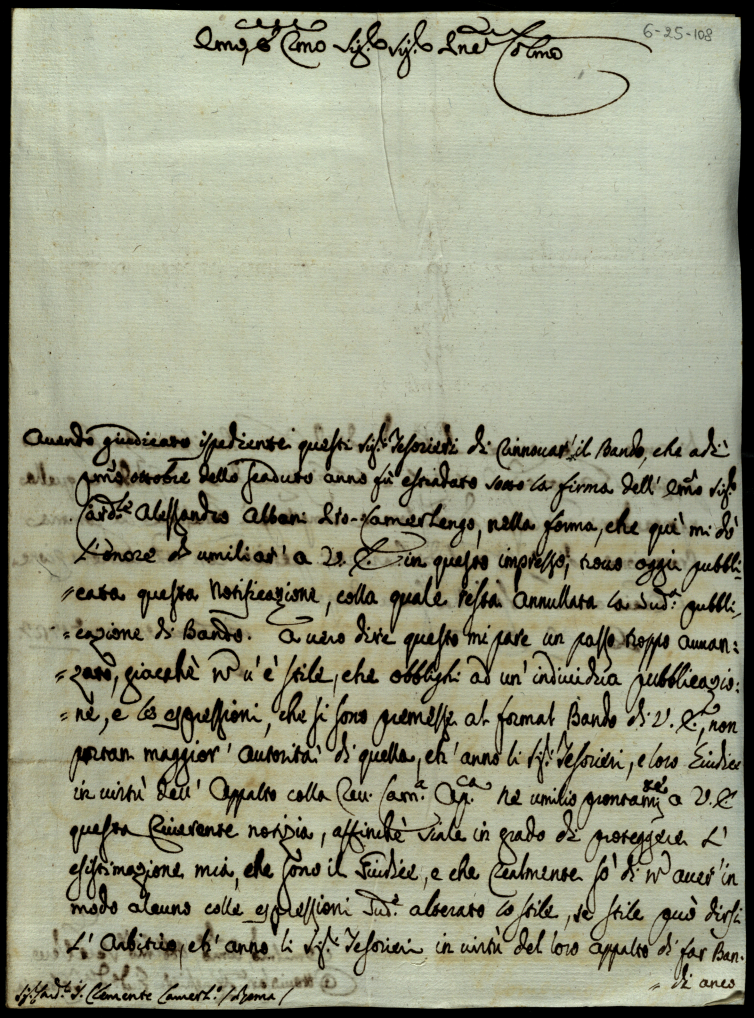 6-25-108
Emo, e Rmo Sig.e Sig.e Pne Colmo
Avendo giudicato ispediente questi Sig.i Tesorieri di rinnovar' il Bando, che adì
pmo ottobre dello scaduto anno fù estradato sotto la firma dell' Emo Sig.e
Card.le Alessandro Albani Pro-Camerlengo, nella forma, che quì mi dò
l'onore di umiliar' a V. E. in questo impresso, trovo oggi pubbli-
=cata questa Notificazione, colla quale resta annullata la sud.a pubbli-
=cazione di Bando. A vero dire questo mi pare un passo troppo avvan=
=zato, giacchè ñ v'è stile, che obblighi ad un' individua pubblicazio=
=ne, e le espressioni, che si sono premesse al format Bando di V. E., non
portan maggior' autorità di quella, ch' anno li Sig.i Tesorieri, e loro Giudice
in virtù dell' Appalto colla Rev. Cam.a Ap.ca Ne umilio prontamte a V. E.
questa riverente notizia, affinchè siale in grado di proteggere l'
esistimazione mia, che sono il Giudice, e che realmente sò di ñ aver' in
modo alcuno colle espressioni sud.e alterato lo stile, se stile può dirsi
l' Arbitrio, ch' anno li Sig.i Tesorieri in virtù del loro appalto di far Ban-
= di anco
Sig. Card.le S. Clemente Camerl.o /Roma/